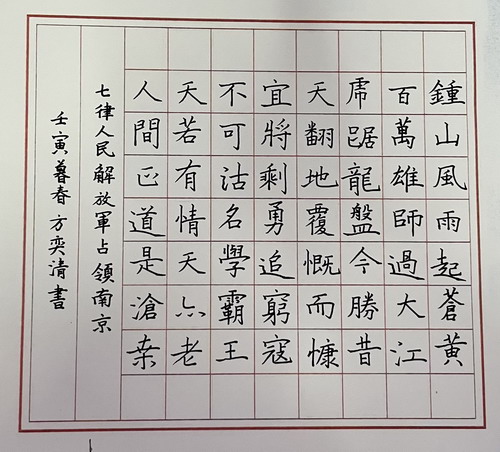 鍾山風雨起蒼黃
百萬雄師過大江
虎踞龍盤今勝昔
天翻地覆慨而慷
宜將剩勇追窮寇
不可沽名學霸王
天若有情天亦老
人間正道是滄桑
七律人民解放軍占領南京
壬寅暮春方奕清書